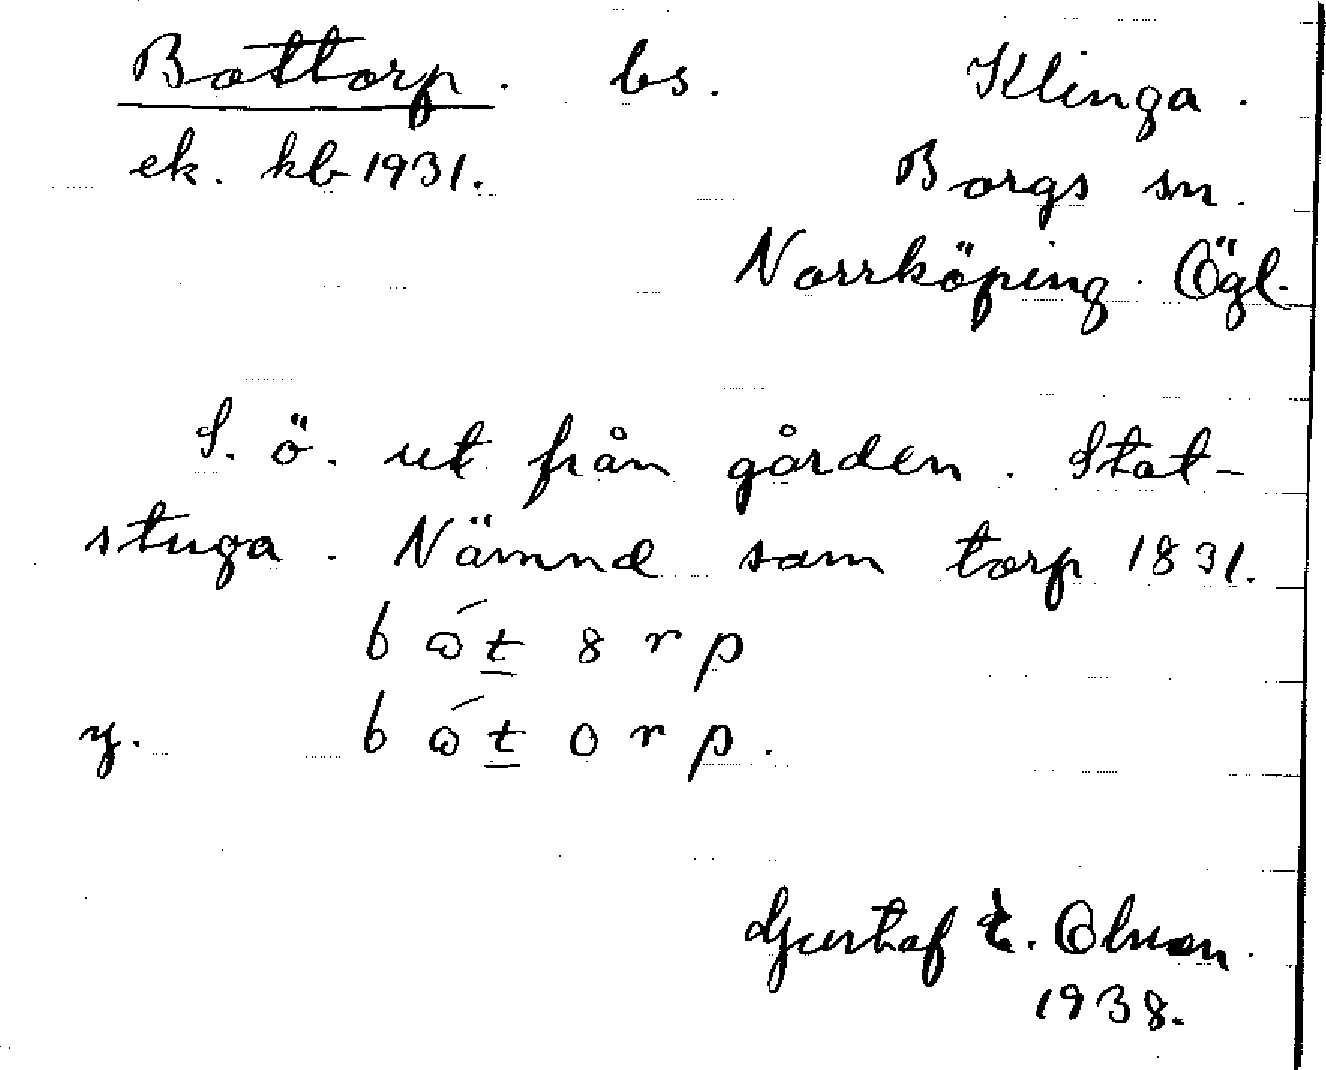 Bottorp. bs. Klinga.
ek. kb 1931. Borgs sn.
Norrköping. Ögl.
S. ö. ut från gården. Stat-
stuga. Nämnd som torp 1831.
b ώ t̲ 8 r p
y. b ώ t̲ o r p.
Gustaf E. Olson.
1938.